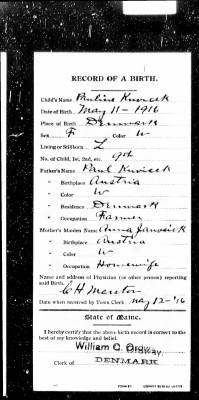 RECORD OF A BIRTH.
Child's Name Pauline
Date of Birth May 11 - 1916
Place of Birth Denmark
Sex F Color W
Living or Stillborn L
No. of Child, 1st, 2nd, etc. 9th
Father's Name Paul
" Birthplace Austria
" Color W
" Residence Denmark
" Occupation Farmer
Mother's Maiden Name Anna
" Birthplace Austria
" Color W
" Occupation Housewife
Name and address of Physician (or other person) reporting
said Birth.
C H
Date when received by Town Clerk May 12 - '16
State of Maine.
I hereby certify that the above birth record is correct to the
best of my knowledge and belief.
William C. Ordway,
Clerk of DENMARK